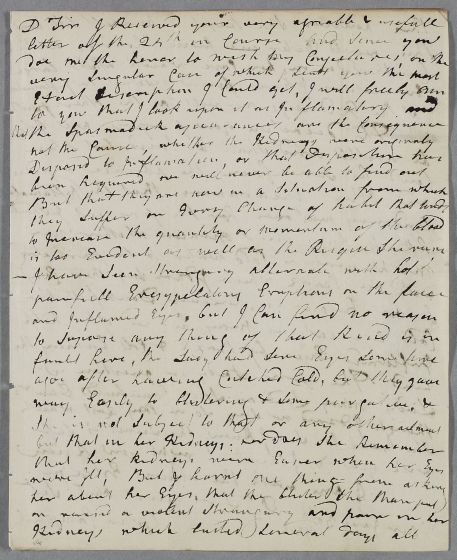 Dr Sir I Received your very agreable & usefull
letter of the 24th in Course and Since you
doe me the honor to wish my Conjectures on the
very Singular Case of which I sent you the most
Exact description I Could get, I will freely own
to you that I look upon it as Inflamatory and
that the Spasmodick appearances are the Consequence
not the Cause, whether the Kidneys were originaly
Disposed to Inflamation, or that Disposition has
been Acquired we will never be able to find out,
But that they are now in a Situation from which
they Suffer on Every Change of habit that tends
to Increase the quantity or momentum of the blood
is too Evident as well as the Reigen She runs
I have Seen Strangury alternate with hot
painfull Erysypelatous Eruptions on the face
and Inflamed Eyes, but I Can find no reason
to Suppose any thing of that Kind is in
fault here, the Lady had Sore Eyes Some time
agoe after having Catched Cold, but they gave
way Easily to blistering & Some purgative, &
She is not Subject to that or any other ailment
but that in her Kidneys. nor does She Remember
that her Kidneys were Easier when her Eyes
were ill; But I learnt one thing from asking
her about her Eyes, that the blister She then put
on raised a violent Strangury and pain in her
Kidneys which lasted Several days all